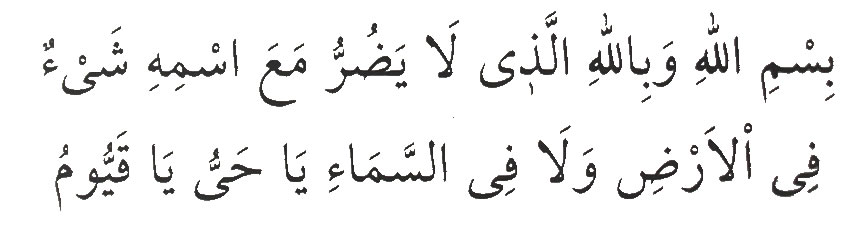 بِسْمِ اللهِ وَبِاللهِ الَّذِى لَا يَضُرُّ مَعَ اسْمِهِ شَىْءٌ
فِى اْلاَرْضِ وَلَا فِى السَّمَاءِ يَا حَىُّ يَا قَيُّومُ